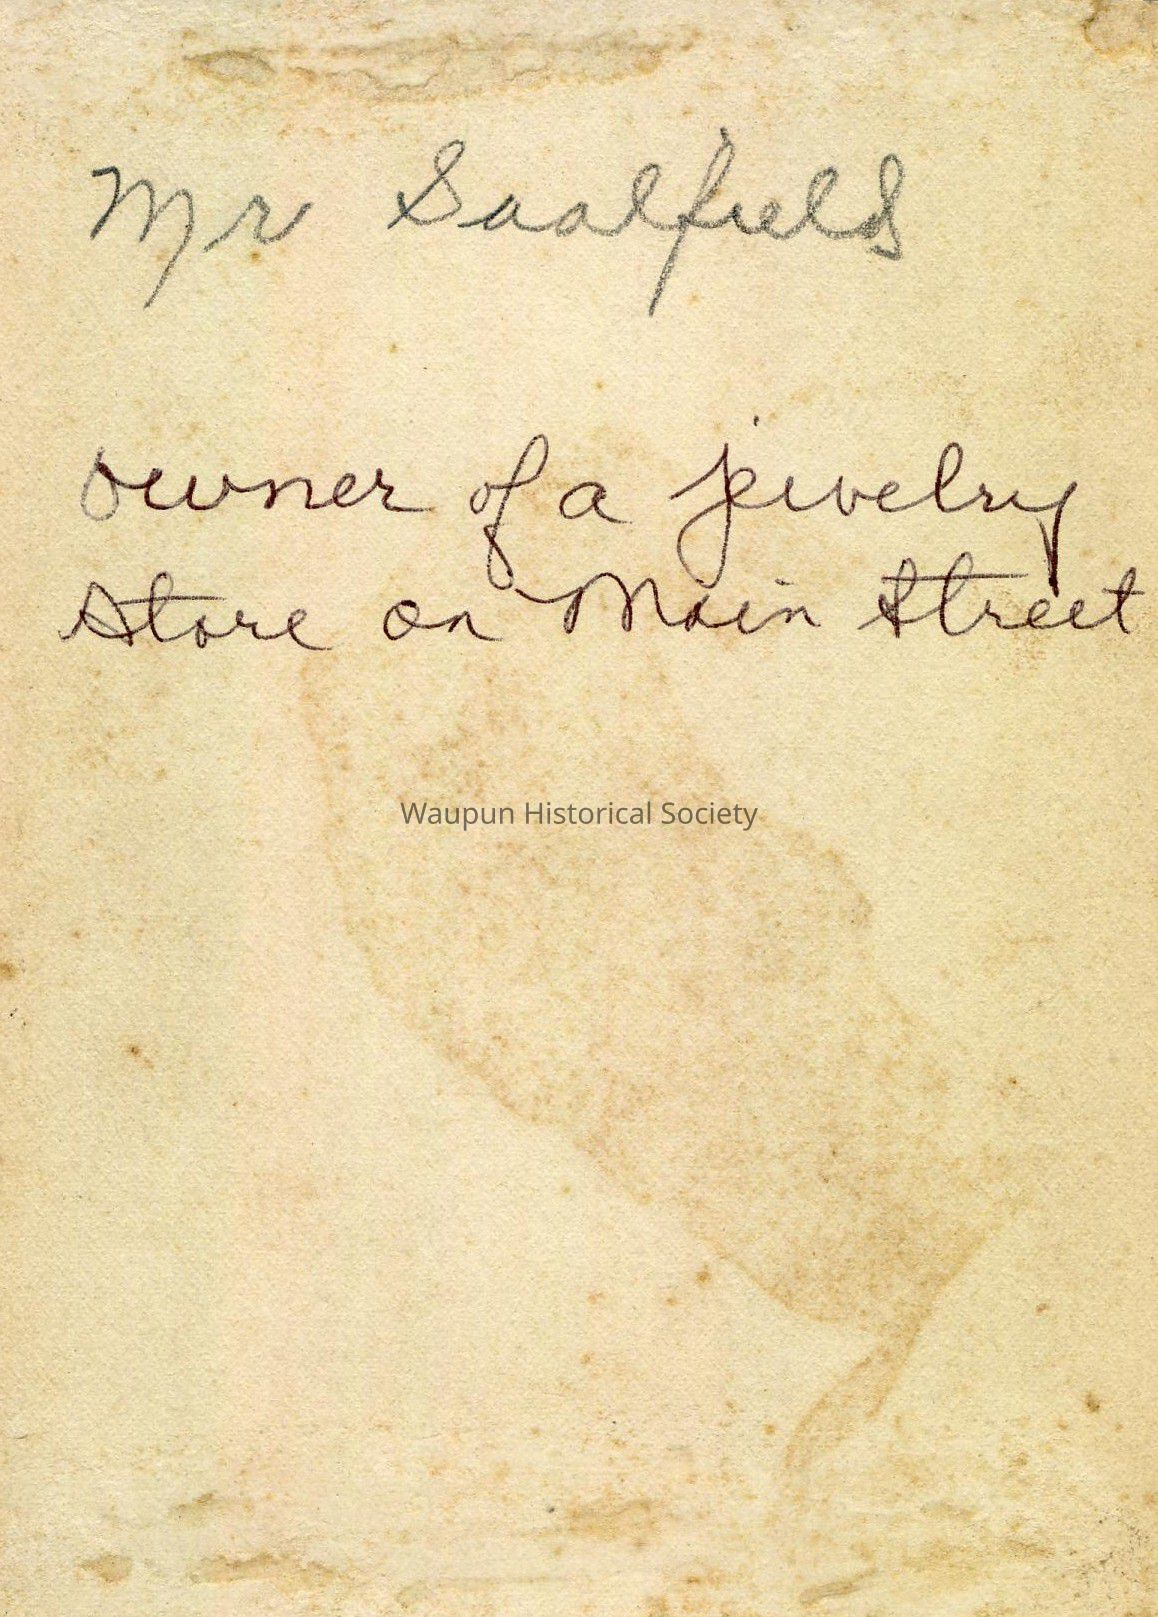 Mr Saalfield
owner of a jewelry
store on Main Street
Waupun Historical Society